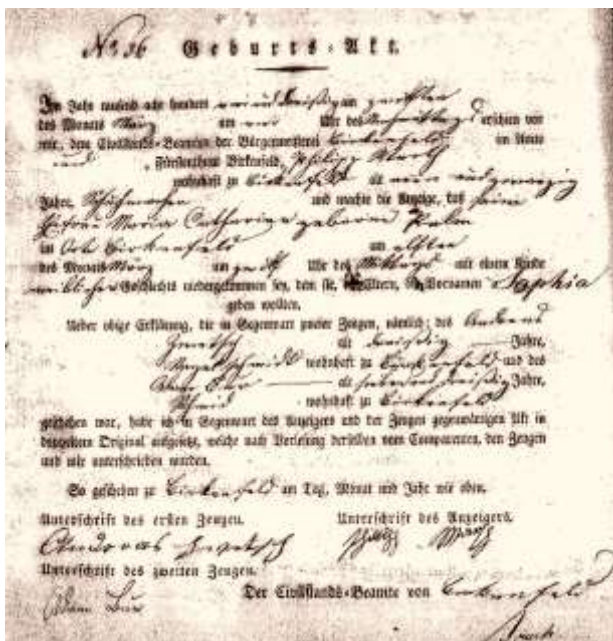 No 36 Geburts-Akt.
Im Jahr tausend acht hundert drei und dreißig am zwölften
des Monats März um Uhr des Vormittags erschien vor
mir, dem Civilstands-Beamten der Bürgermeisterei Birkenfeld im Amte
und Fürstenthum Birkenfeld, Philipp
wohnhaft zu Birkenfeld alt neun und zwanzig
Jahre, Schuhmacher und machte die Anzeige, daß seine
Ehefrau Maria Catharina geborne Palm
im Orte Birkenfeld am elften
des Monats März um zwölf Uhr des Mittags mit einem Kinde
weiblichen Geschlechts niedergekommen sey, dem sie, die Eltern, den Vornamen Sophia
geben wollten.
Ueber obige Erklärung, die in Gegenwart zweier Zeugen, nämlich: des Andreas
Zwetsch alt dreißig Jahre,
Nagelschmidt wohnhaft zu Birkenfeld und des
alt sieben und dreißig Jahre,
wohnhaft zu Birkenfeld
geschehen war, habe ich in Gegenwart des Anzeigers und der Zeugen gegenwärtigen Akt in
doppeltem Original aufgesetzt, welche nach Vorlesung derselben vom Comparenten, den Zeugen
und mir unterschrieben wurden.
So geschehen zu Birkenfeld am Tag, Monat und Jahr wie oben.
Unterschrift des ersten Zeugen. Unterschrift des Anzeigers.
Andreas Zwetsch
Unterschrift des zweiten Zeugen.
Der Civilstands-Beamte von Birkenfeld